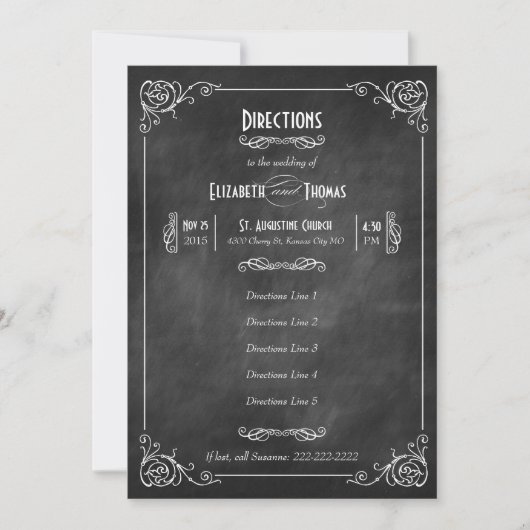 Directions
to the wedding of
Elizabeth and Thomas
Nov 25
2015
St. Augustine Church
4300 Cherry St, Kansas City MO
4:30
PM
Directions Line 1
Directions Line 2
Directions Line 3
Directions Line 4
Directions Line 5
If lost, call Susanne: 222-222-2222